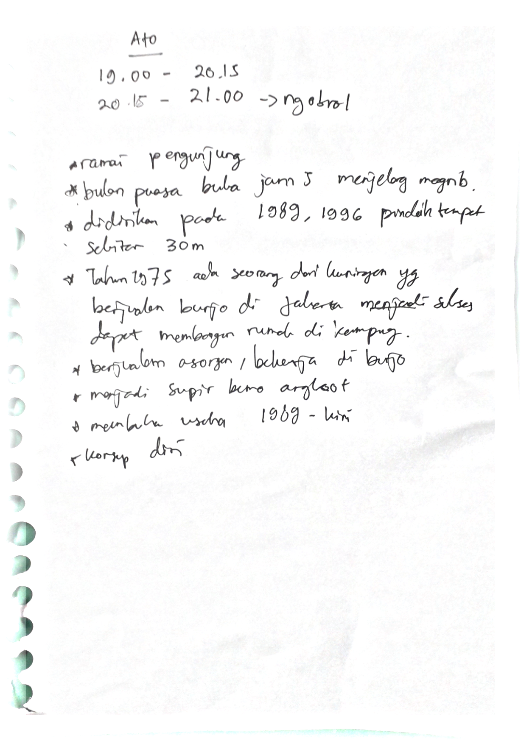 Ato
19.00 - 20.15
20.15 - 21.00 -> ngobrol
* ramai pengunjung
* bulan puasa buka jam 5 menjelag magrib.
* didirikan pada 1989, 1996 pindah tempat
sekitar 30m
* Tahun 1975 ada seorang dari kuningan yg
berjualan burjo di Jakarta menjadi sukses
dapat membangun rumah di kampug.
* berjualan asongan, bekerja di burjo
* menjadi supir bemo angkot
* membuka usaha 1989 - kini
* konsep diri